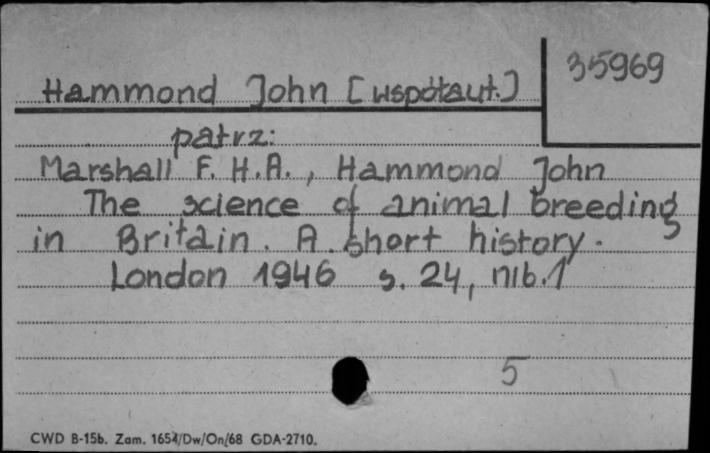 35969
Hammond John [współaut.]
patrz:
Marshall F. H.A., Hammond John
The science of animal breeding
in Britain. A short history.
London 1946 s. 24, nlb.1
5
CWD B-15b. Zam. 1654/Dw/On/68 GDA-2710.